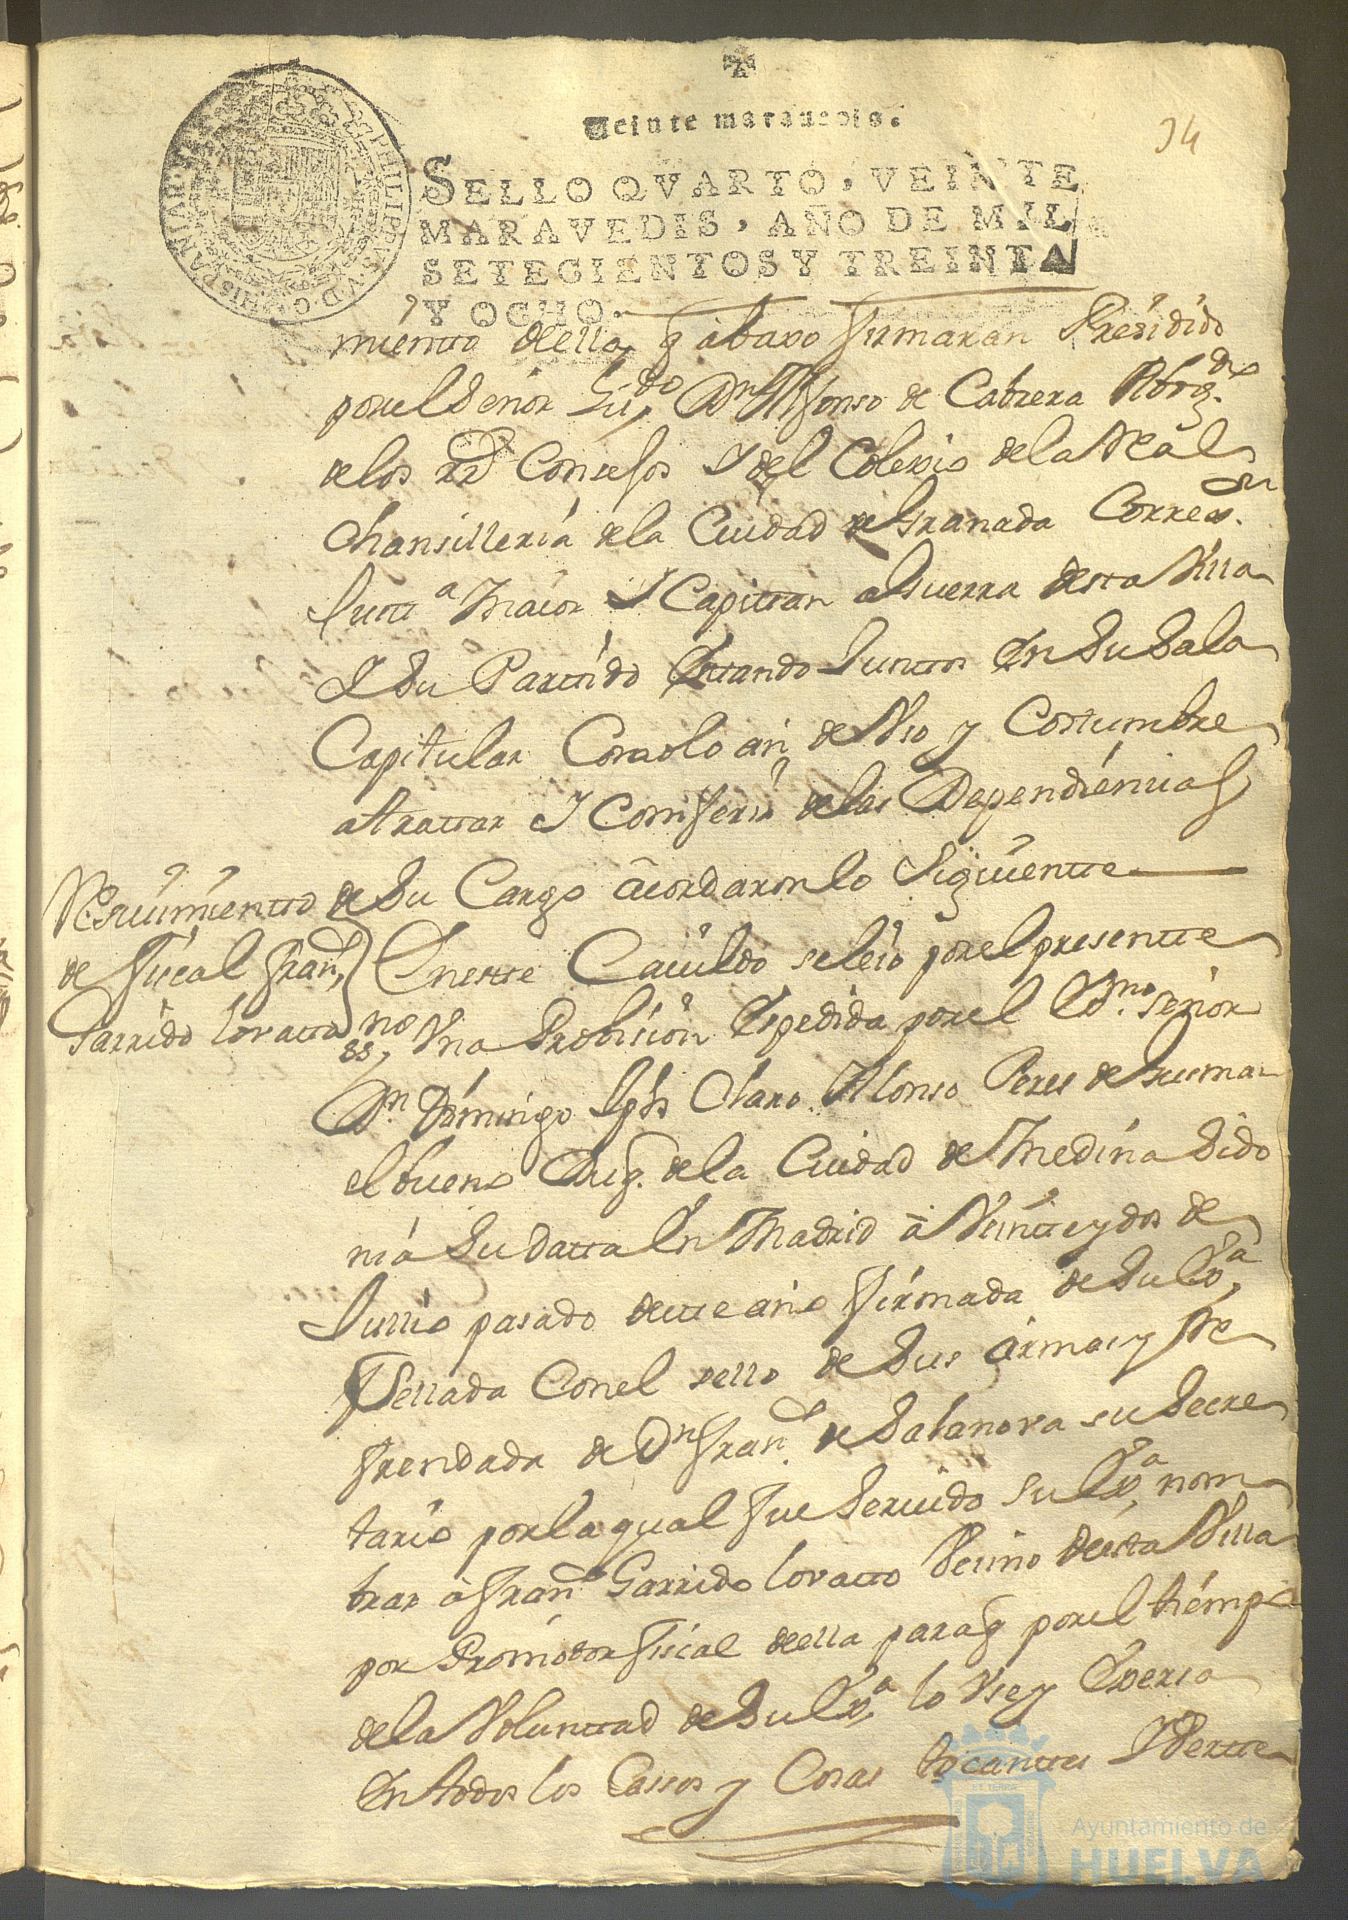 Veinte maravedis.
34
SELLO QVARTO, VEINTE
MARAVEDIS, AÑO DE MIL
SETECIENTOS Y TREINTA
Y OCHO.
PHILIPPUS V D G HISPANIAR
miento della q abaxo firmaran Presidido
por el Señor Liz.do Dn Alfonso de Cabrera Abog.do
de los Rs Consejos Y del Colexio de la Real
Chansilleria de la Ciudad de Granada Correx.or
Justt.a Maior Y Capittan a Guerra desta Villa
Y Su Partido Estando Junttos En Su Sala
Capitular Como lo an de Vso y Costumbre
a trattar Y Conferir de las Dependencias
de Su Cargo acordaron lo Siguiente
Reciuimiento
de Fiscal Fran.co
Garrido Lovatto
En este Cauildo se leio por el presente
no Vna Probision Espedida por el Exmo. señor
Dn. Domingo Jph Claro Alonso Peres de Gusman
el bueno Duq. de la Ciudad de Medina Sido
nia Su datta En Madrid a Veintte y dos de
Jullio pasado deste año firmada de Su Ex.a
Sellada Con el sello de Sus armas y Re
frendada de Dn Fran.co de Salanova su Secre
tario por la qual fue Seruido su Ex.a nom
brar a Fran.co Garrido Lovatto Vecino desta Villa
por Promotor fiscal della para q por el tiempo
de la Volunttad de Su Ex.a lo Vse y Exersa
En todos los Cassos y Cosas tocanttes Y Pertte
Ayuntamiento de
HUELVA